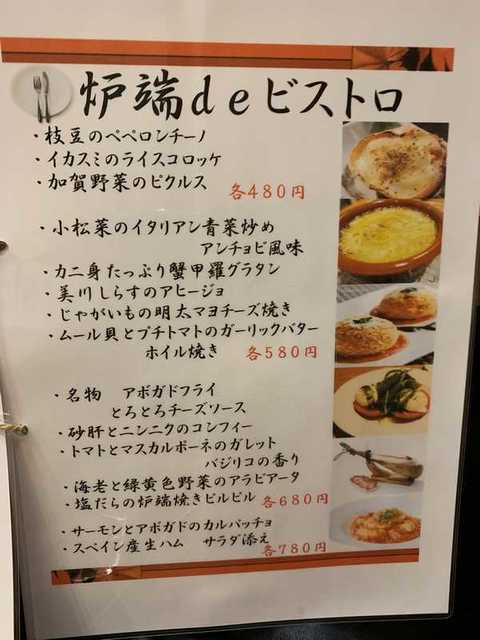 炉端deビストロ
・枝豆のペペロンチーノ
・イカスミのライスコロッケ
・加賀野菜のピクルス
各480円
・小松菜のイタリアン青菜炒め
アンチョビ風味
・カニ身たっぷり蟹甲羅グラタン
・美川しらすのアヒージョ
・じゃがいもの明太マヨチーズ焼き
・ムール貝とプチトマトのガーリックバター
ホイル焼き 各580円
・名物 アボガドフライ
とろとろチーズソース
・砂肝とニンニクのコンフィー
・トマトとマスカルポーネのガレット
バジリコの香り
・海老と緑黄色野菜のアラビアータ
・塩だらの炉端焼きピルピル 各680円
・サーモンとアボガドのカルパッチョ
・スペイン産生ハム サラダ添え
各780円